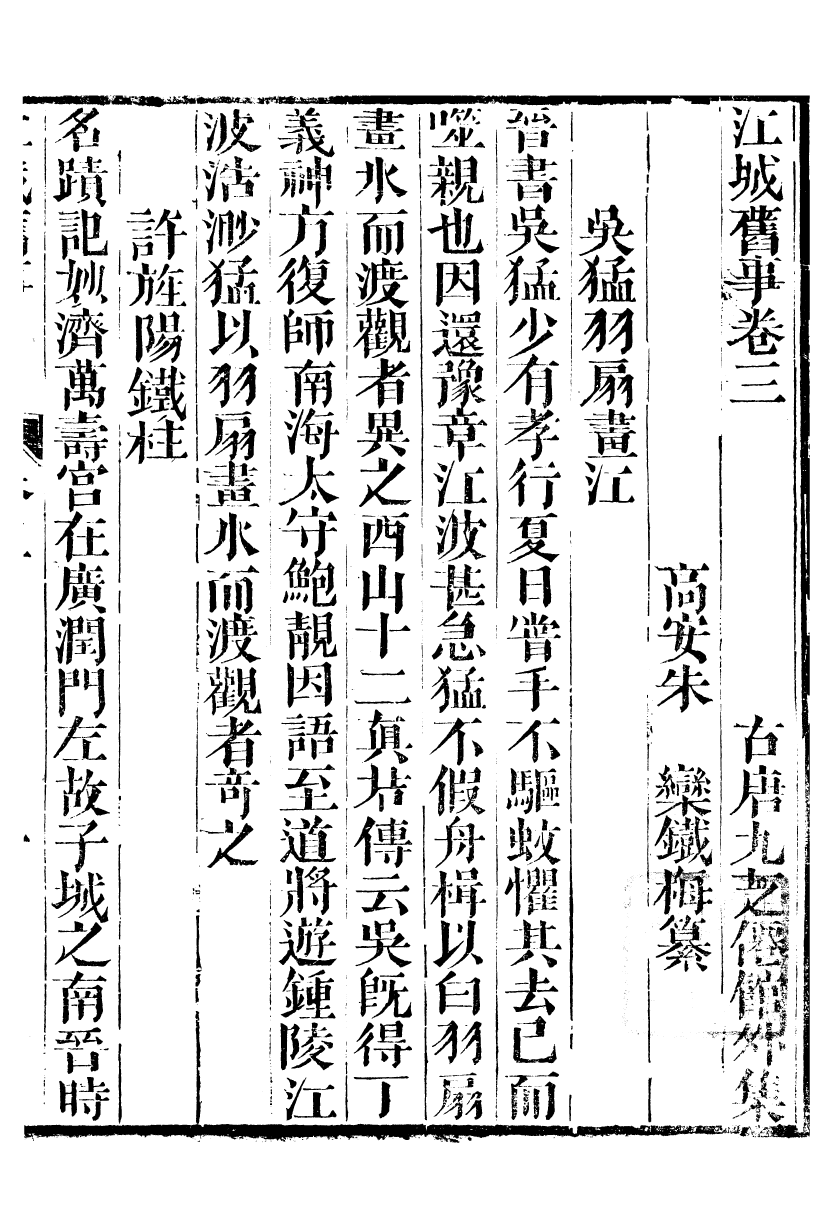 江城舊事卷三　古唐九芝僊館外集
高安朱　欒鐵梅纂
吳猛羽扇畫江
晉書吳猛少有孝行夏日嘗手不驅蚊懼其去己而
噬親也因還豫章江波甚急猛不假舟楫以白羽扇
畫水而渡觀者異之西山十二真君傳云吳旣得丁
義神方復師南海太守鮑靚因語至道將遊鍾陵江
波浩渺猛以羽扇畫水而渡觀者奇之
許旌陽鐵柱
名蹟記妙濟萬壽宮在廣潤門左故子城之南晉時